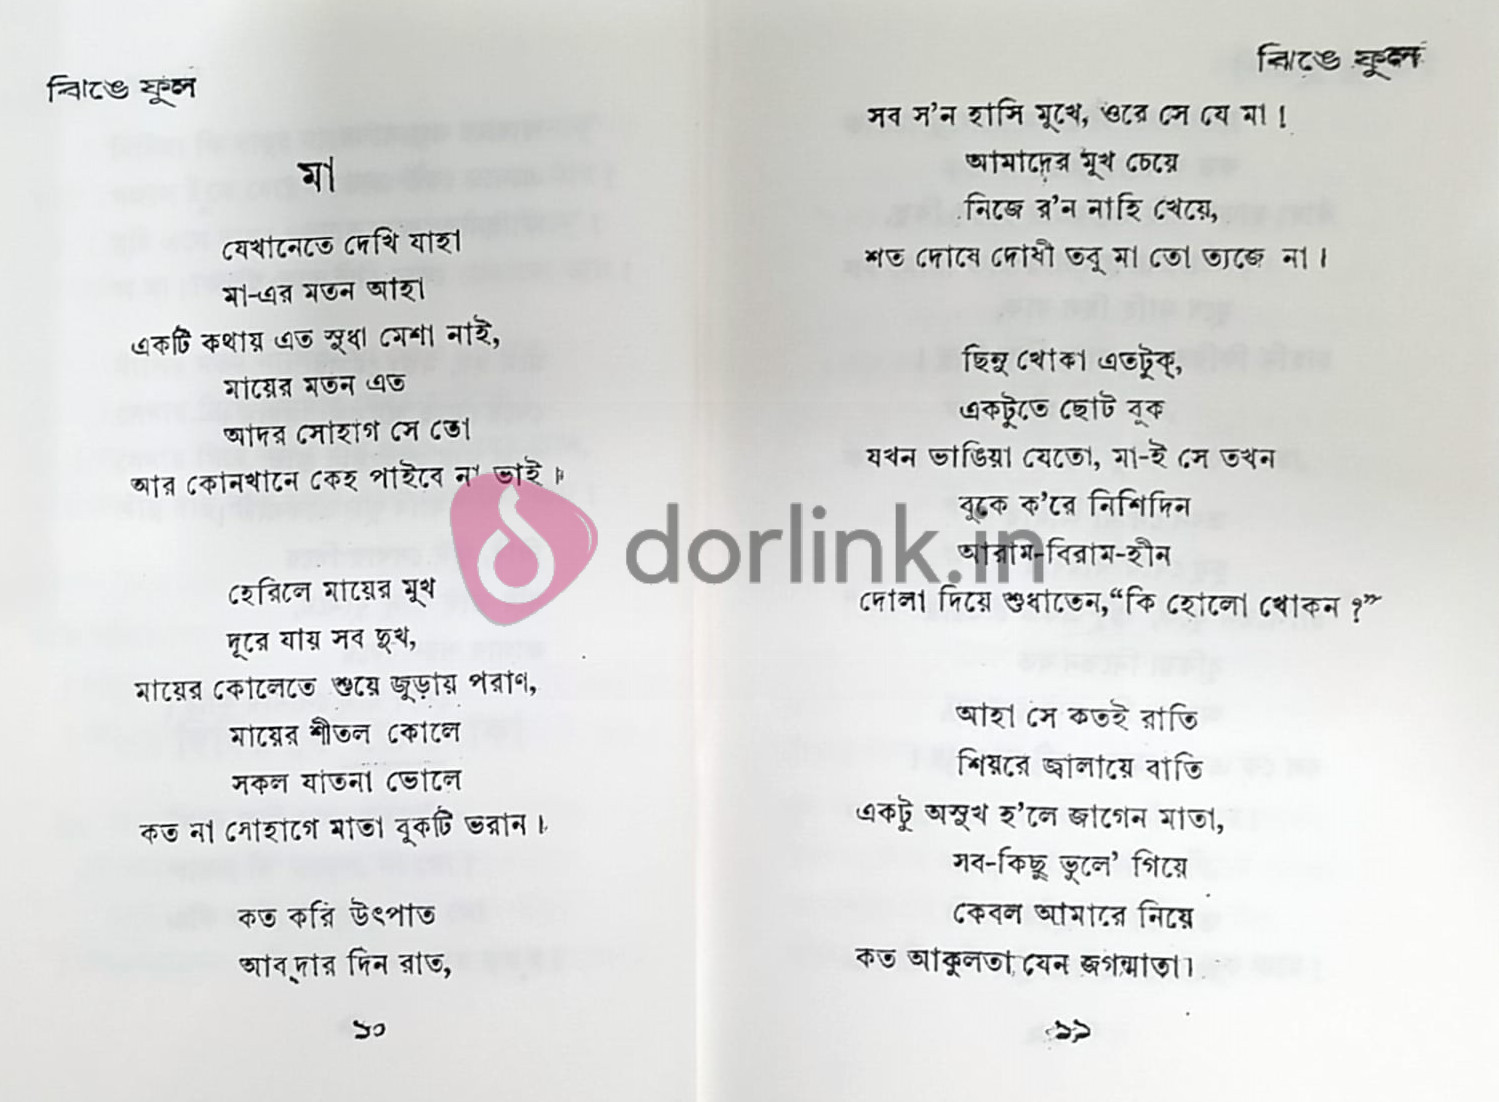 ঝিঙে ফুল
মা
যেখানেতে দেখি যাহা
মা-এর মতন আহা
একটি কথায় এত সুধা মেশা নাই,
মায়ের মতন এত
আদর সোহাগ সে তো
আর কোনখানে কেহ পাইবে না ভাই।
হেরিলে মায়ের মুখ
দূরে যায় সব দুখ,
মায়ের কোলেতে শুয়ে জুড়ায় পরাণ,
মায়ের শীতল কোলে
সকল যাতনা ভোলে
কত না সোহাগে মাতা বুকটি ভরান।
কত করি উৎপাত
আব্দার দিন রাত,
১০
ঝিঙে ফুল
সব স'ন হাসি মুখে, ওরে সে যে মা!
আমাদের মুখ চেয়ে
নিজে র'ন নাহি খেয়ে,
শত দোষে দোষী তবু মা তো ত্যজে না।
ছিনু খোকা এতটুকু,
একটুতে ছোট বুক
যখন ভাঙিয়া যেতো, মা-ই সে তখন
বুকে ক'রে নিশিদিন
আরাম-বিরাম-হীন
দোলা দিয়ে শুধাতেন, “কি হোলো খোকন ?”
আহা সে কতই রাতি
শিয়রে জ্বালায়ে বাতি
একটু অসুখ হ'লে জাগেন মাতা,
সব-কিছু ভুলে' গিয়ে
কেবল আমারে নিয়ে
কত আকুলতা যেন জগন্মাতা।
১১
dorlink.in